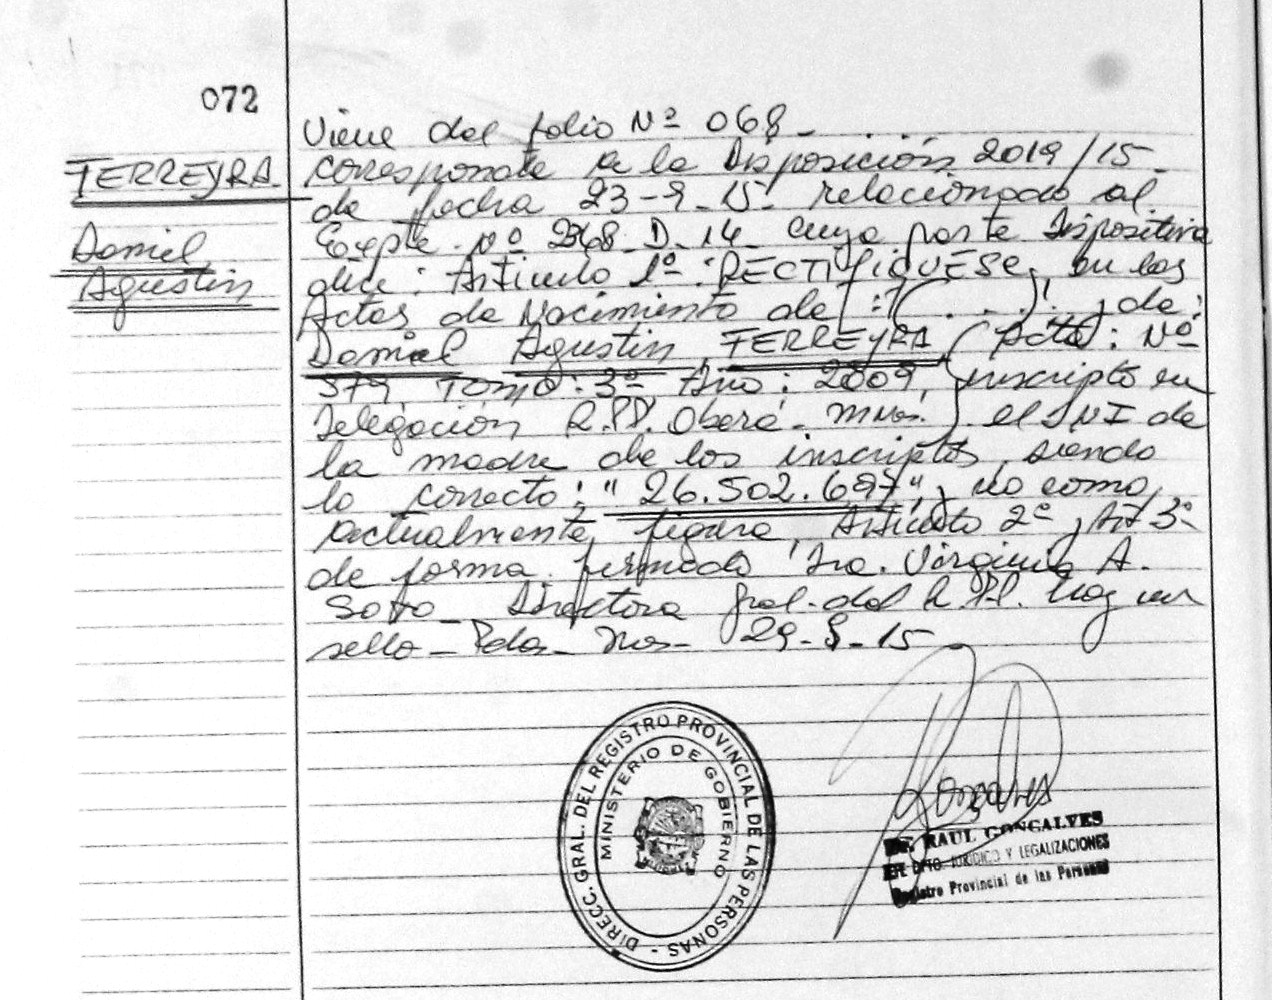 072
Viene del folio Nº 068 -
TERREYRA
corresponde a la Disposición 2019/15
de fecha 23-9-15 relacionado al
Daniel
Expte. Nº 2368-D-14 cuya parte Dispositiva
Agustin
dice: Artículo 1º: RECTIFIQUESE, en las
Actas de Nacimiento de: (. . . .), de:
Daniel Agustin FERREYRA (Acta: Nº
379, Tomo: 3º Año: 2009, inscripto en
Delegación R.P.P. Oberá - Mnes.) el DNI de
la madre de los inscriptos, siendo
lo correcto: "26.502.697", no como
actualmente figura. Artículo 2º, Art 3º
de forma. firmado Dra. Virginia A.
Soto - Directora Gral. del R.P.P. Hay un
sello - Pdas - Mns - 29-9-15
DIRECC. GRAL. DEL REGISTRO PROVINCIAL DE LAS PERSONAS -
MINISTERIO DE GOBIERNO
Dr. RAUL GONCALVES
DPTO. JURIDICO Y LEGALIZACIONES
Registro Provincial de las Personas